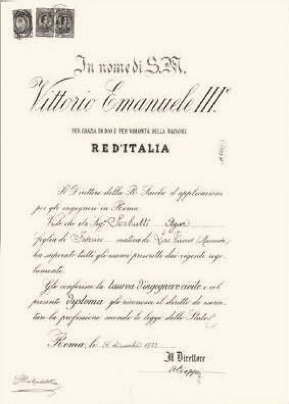 In nome di S.M.
Vittorio Emanuele III.º
PER GRAZIA DI DIO E PER VOLONTÀ DELLA NAZIONE
RE D'ITALIA
Il Direttore della R. Scuola d'applicazione
per gli ingegneri in Roma
Visto che
figlia di nativa di
ha superato tutti gli esami prescritti dal vigente rego
lamento.
Gli conferisce la laurea d'ingegnere civile e col
presente diploma gli riconosce il diritto di eserci
tare la professione secondo le leggi dello Stato.
Roma, li
Il Direttore